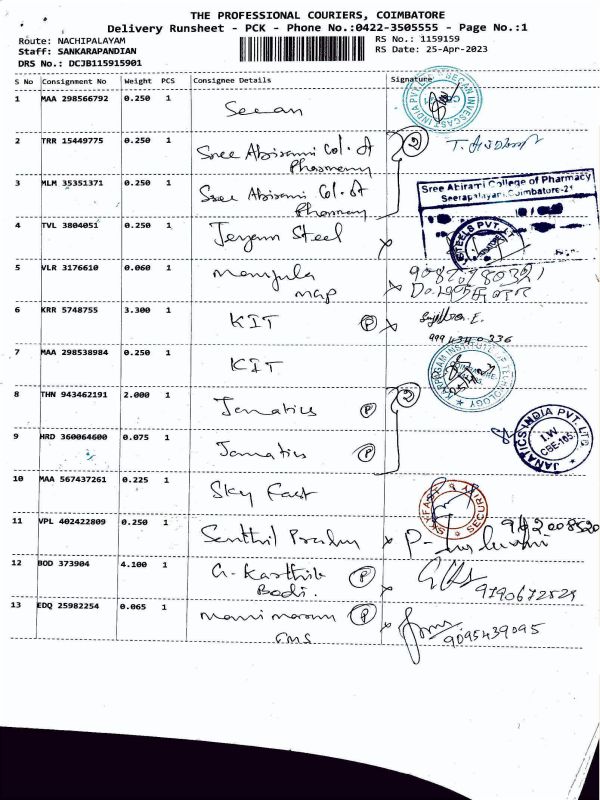 THE PROFESSIONAL COURIERS, COIMBATORE
Delivery Runsheet - PCK - Phone No.:0422-3505555 - Page No.:1
Route: NACHIPALAYAM RS No.: 1159159
Staff: SANKARAPANDIAN RS Date: 25-Apr-2023
DRS No.: DCJB115915901
S No Consignment No Weight PCS Consignee Details Signature
1 MAA 298566792 0.250 1
2 TRR 15449775 0.250 1 Sree Abirami Col. of
Pharmacy
2
3 MLM 35351371 0.250 1 Sree Abirami Col. of
Pharmacy
Sree Abirami College of Pharmacy
Seerapalayam, Coimbatore-21
4 TVL 3804051 0.250 1 Steel
5 VLR 3176610 0.060 1 Manjula
Map
6 KRR 5748755 3.300 1 KIT P
7 MAA 298538984 0.250 1 KIT
KARPAGAM INSTITUTE OF TECHNOLOGY
8 THN 943462191 2.000 1 Janatics P
2
9 HRD 360064600 0.075 1 Janatics P
JANATICS INDIA PVT. LTD.
I.W
10 MAA 567437261 0.225 1 Sky Fast
SKYFAST SECURITY
11 VPL 402422809 0.250 1 Senthil Prabhu
12 BOD 373904 4.100 1 G. Karthik P
Bodi.
13 EDQ 25982254 0.065 1 P
9095439095